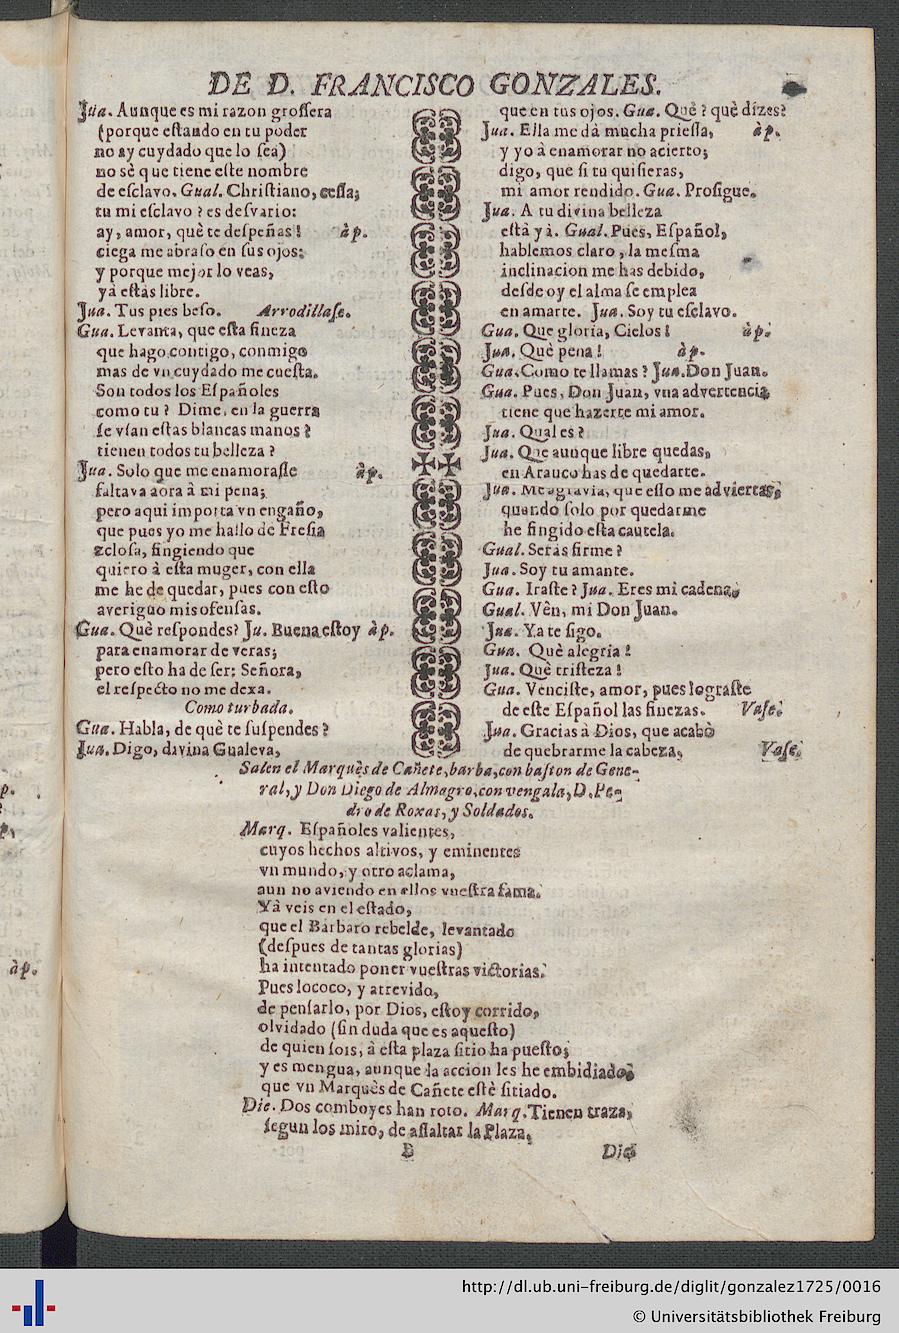 DE D. FRANCISCO GONZALES.
Jua. Aunque es mi razon groſſera
(porque eſtando en tu poder
no ay cuydado que lo ſea)
no sè que tiene eſte nombre
de eſclavo. Gual. Chriſtiano, ceſſa;
tu mi eſclavo ? es deſvario:
ay, amor, què te deſpeñas ! àp.
ciega me abraſo en ſus ojos:
y porque mejor lo veas,
yà eſtàs libre.
Jua. Tus pies beſo. Arrodillaſe.
Gua. Levanta, que eſta fineza
que hago contigo, conmigo
mas de vn cuydado me cueſta.
Son todos los Eſpañoles
como tu ? Dime, en la guerra
ſe vſan eſtas blancas manos ?
tienen todos tu belleza ?
Jua. Solo que me enamoraſſe àp.
faltava aora à mi pena;
pero aqui importa vn engaño,
que pues yo me hallo de Freſia
zeloſa, fingiendo que
quiero à eſta muger, con ella
me he de quedar, pues con eſto
averiguo mis ofenſas.
Gua. Què reſpondes? Ju. Buena eſtoy àp.
para enamorar de veras;
pero eſto ha de ſer: Señora,
el reſpecto no me dexa.
Como turbada.
Gua. Habla, de què te ſuſpendes ?
Jua. Digo, divina Gualeva,
que en tus ojos. Gua. Què ? què dizes?
Jua. Ella me dà mucha prieſſa, àp.
y yo à enamorar no acierto;
digo, que ſi tu quiſieras,
mi amor rendido. Gua. Proſigue.
Jua. A tu divina belleza
eſtà yà. Gual. Pues, Eſpañol,
hablemos claro, la meſma
inclinacion me has debido,
deſde oy el alma ſe emplea
en amarte. Jua. Soy tu eſclavo.
Gua. Que gloria, Cielos ! àp.
Jua. Què pena ! àp.
Gua. Como te llamas ? Jua. Don Juan.
Gua. Pues, Don Juan, vna advertencia
tiene que hazerte mi amor.
Jua. Qual es ?
Jua. Que aunque libre quedas,
en Arauco has de quedarte.
Jua. Me agravia, que eſſo me adviertas,
quando ſolo por quedarme
he fingido eſta cautela.
Gual. Seràs firme ?
Jua. Soy tu amante.
Gua. Iraſte ? Jua. Eres mi cadena.
Gual. Vèn, mi Don Juan.
Jua. Ya te ſigo.
Gua. Què alegria !
Jua. Què triſteza !
Gua. Venciſte, amor, pues lograſte
de eſte Eſpañol las finezas. Vaſe.
Jua. Gracias à Dios, que acabò
de quebrarme la cabeza. Vaſe.
Salen el Marquès de Cañete, barba, con baſton de Gene-
ral, y Don Diego de Almagro, con vengala, D. Pe-
dro de Roxas, y Soldados.
Marq. Eſpañoles valientes,
cuyos hechos altivos, y eminentes
vn mundo, y otro aclama,
aun no aviendo en ellos vueſtra fama.
Yà veis en el eſtado,
que el Barbaro rebelde, levantado
(deſpues de tantas glorias)
ha intentado poner vueſtras victorias.
Pues lococo, y atrevido,
de penſarlo, por Dios, eſtoy corrido,
olvidado (ſin duda que es aqueſto)
de quien ſois, à eſta plaza ſitio ha pueſto;
y es mengua, aunque la accion les he embidiado,
que vn Marquès de Cañete eſtè ſitiado.
Die. Dos comboyes han roto. Marq. Tienen traza,
ſegun los miro, de aſſaltar la Plaza.
B Die
àp.
http://dl.ub.uni-freiburg.de/diglit/gonzalez1725/0016
© Universitätsbibliothek Freiburg